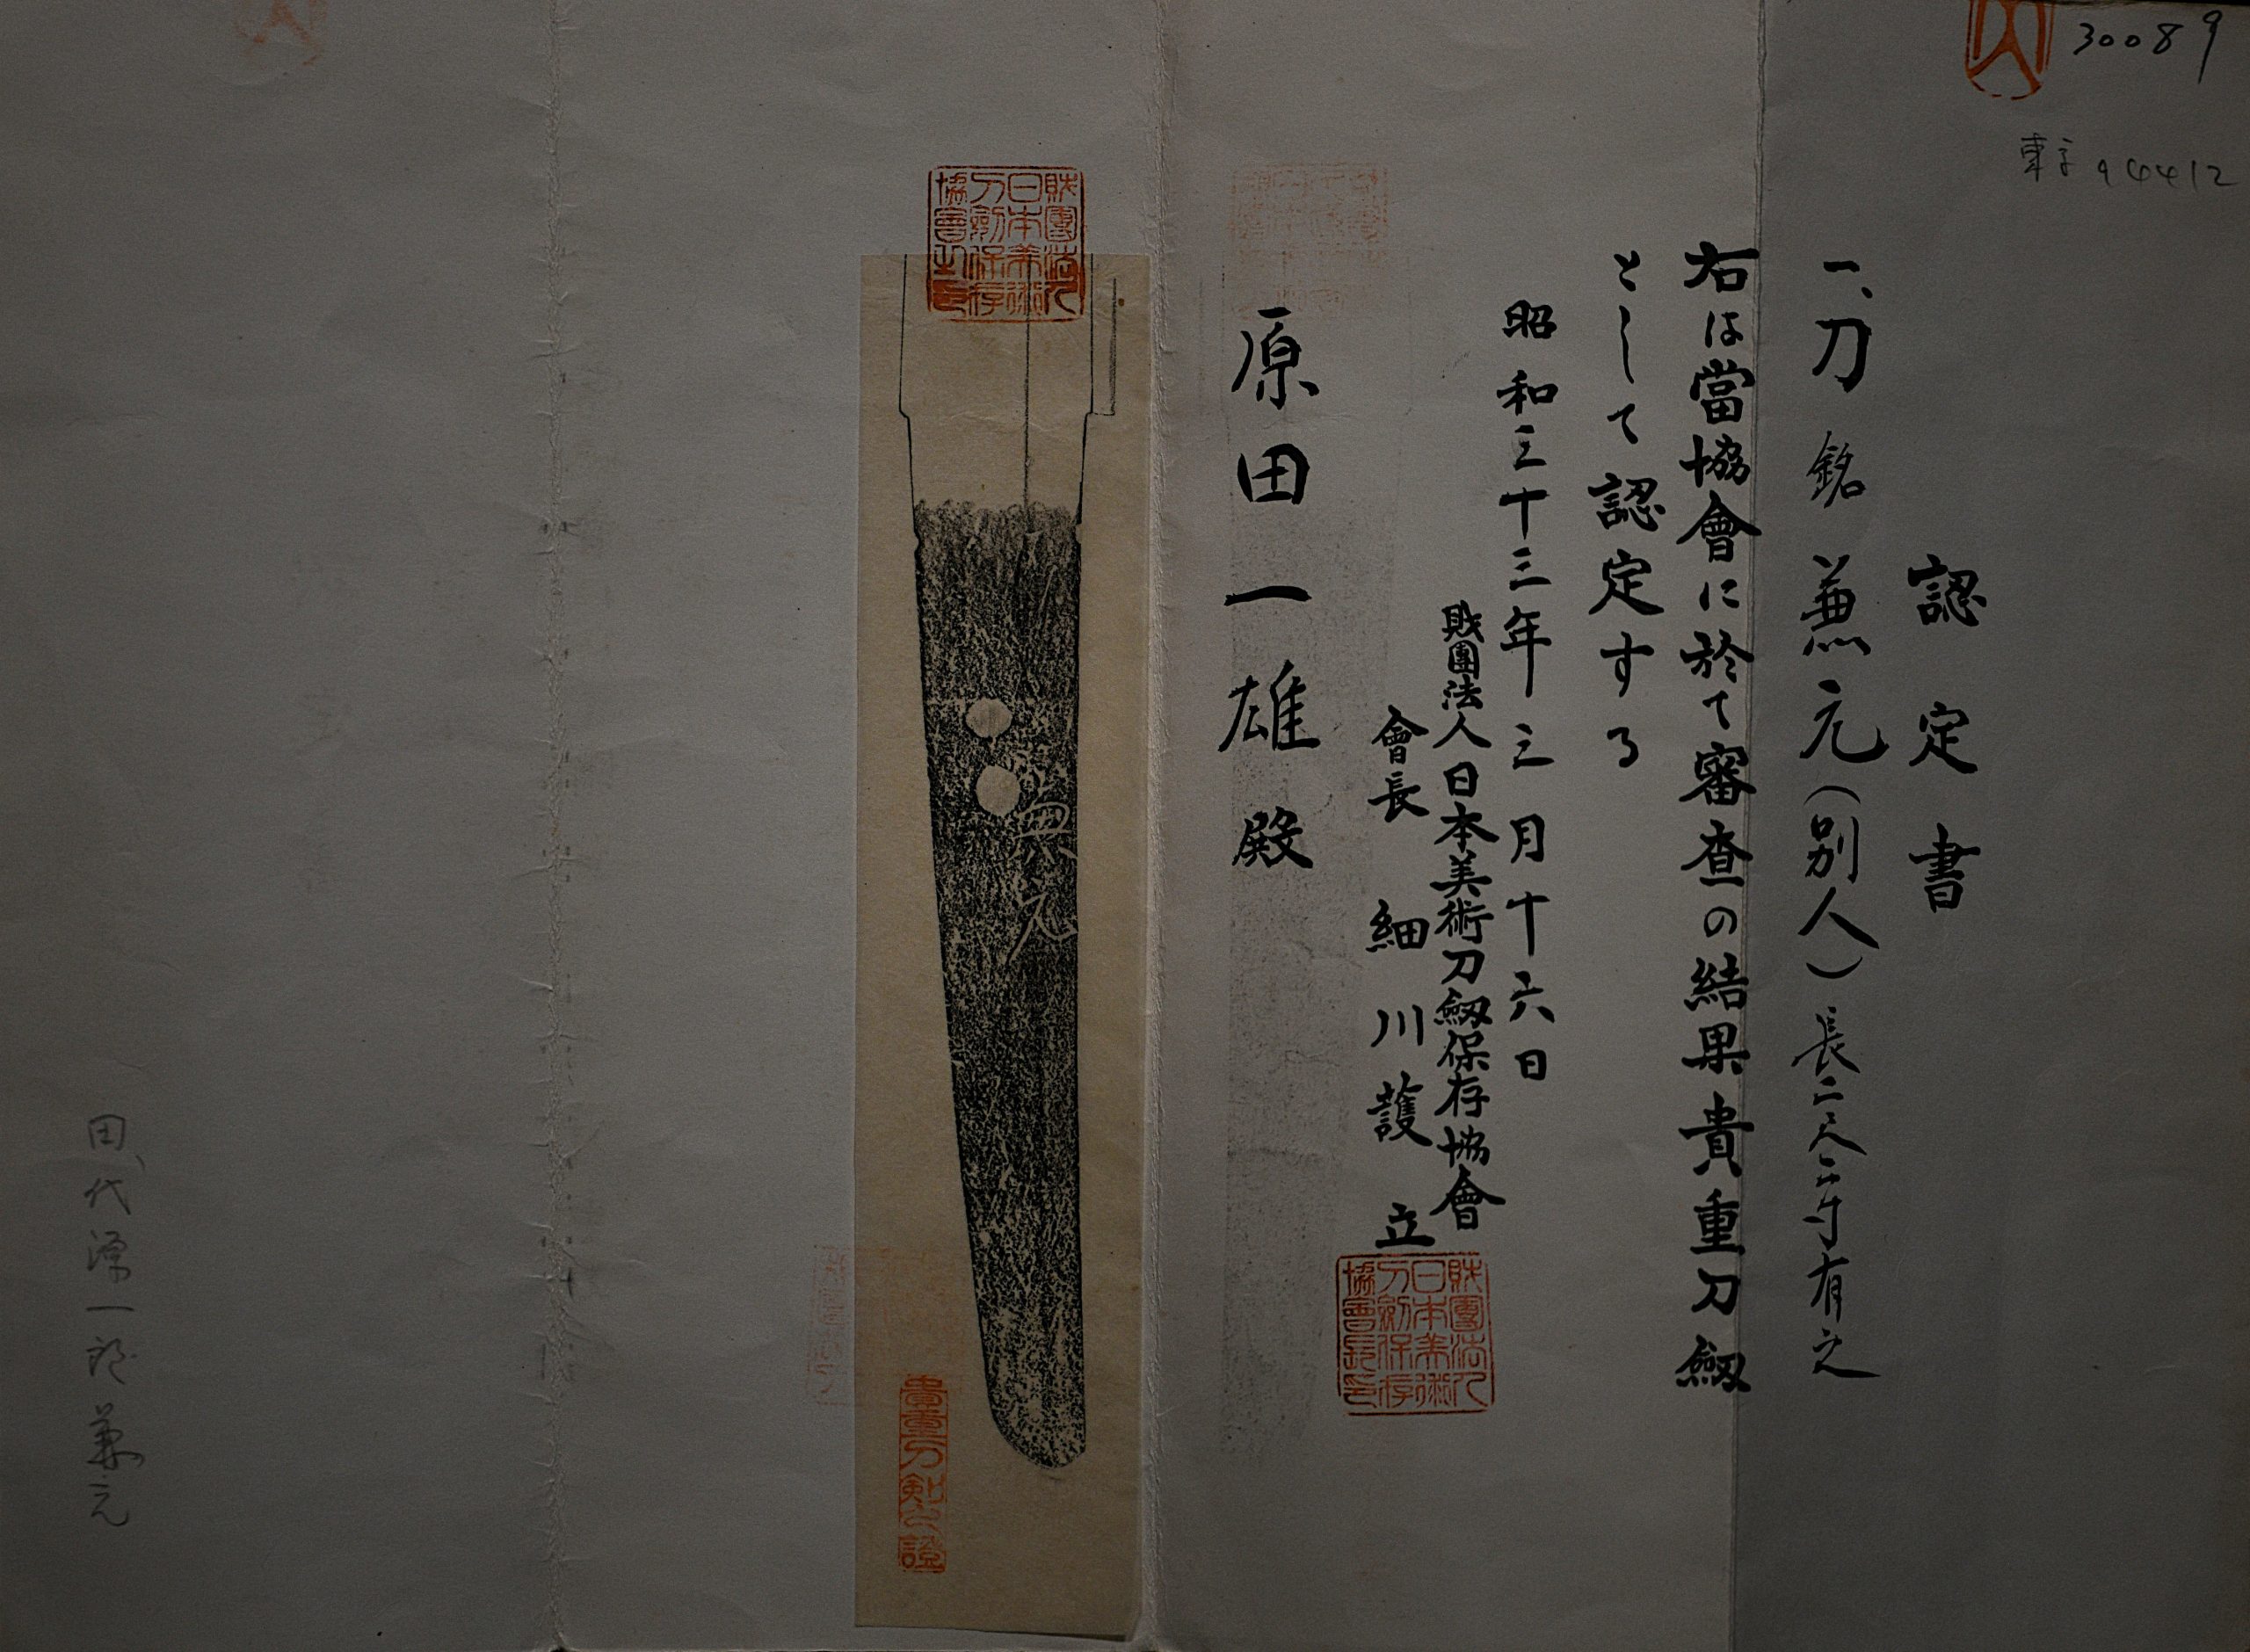 30089
東京 94412
認定書
一、刀 銘 兼元(別人)長二尺二寸有之
右は當協會に於て審査の結果貴重刀劔
として認定する
昭和三十三年三月十六日
財團法人日本美術刀劔保存協會
會長 細川護立
財團法人日本美術刀劍保存協會長印
原田一雄殿
財團法人日本美術刀劍保存協會之印
兼元
貴重刀剣之證
田代源一郎兼元